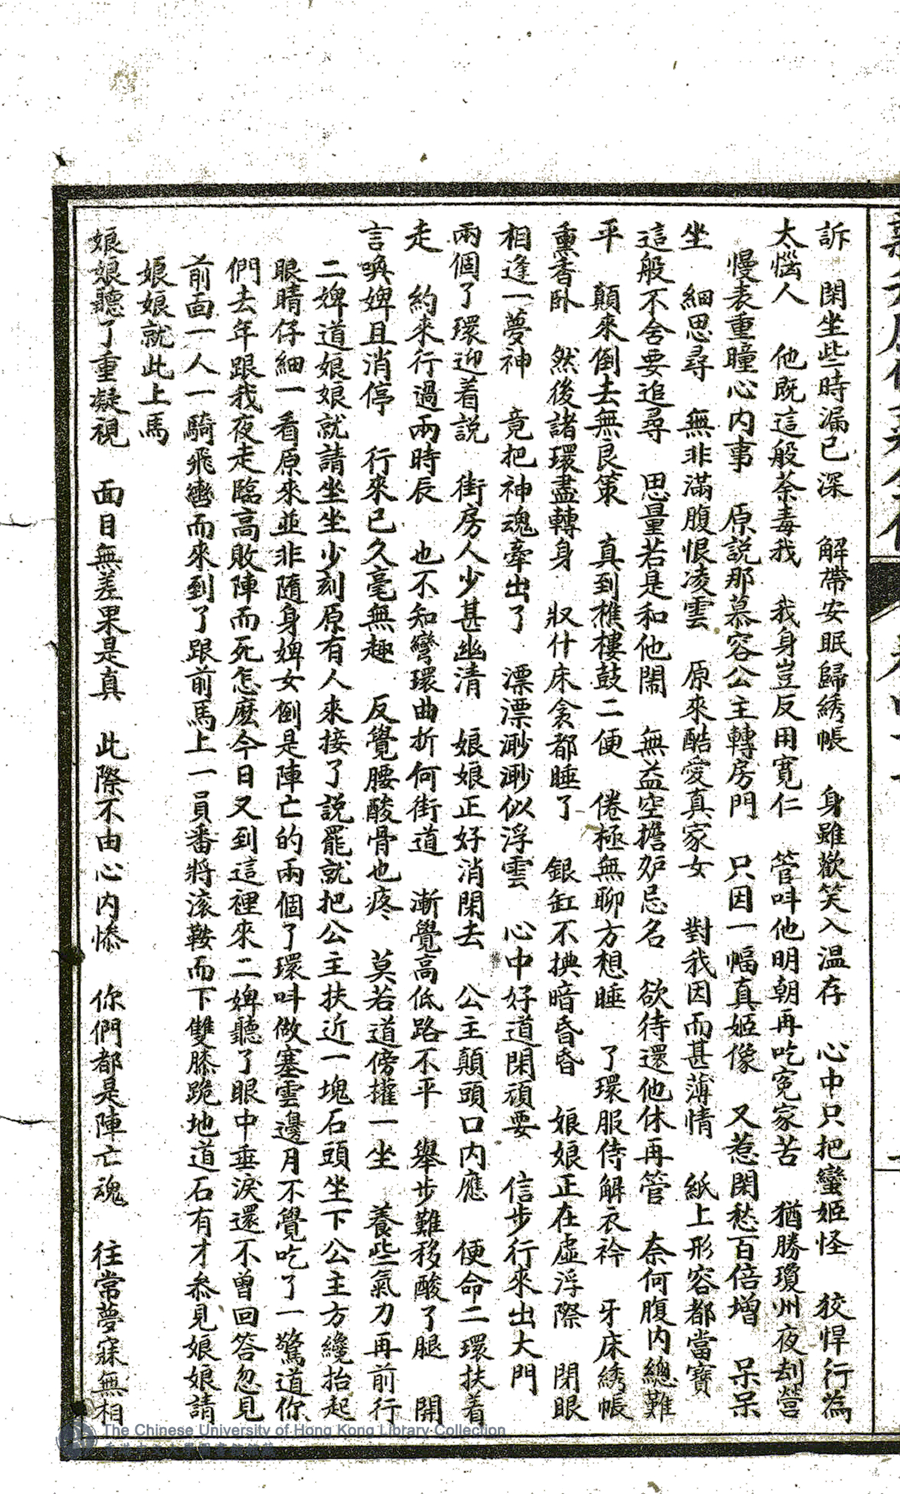 訴 閑坐些時漏已深 解帶安眠歸綉帳 身雖歡笑入温存 心中只把蠻姬怪 狡悍行為
太惱人 他既這般荼毒我 我身豈反用寛仁 管呌他明朝再吃寃家苦 猶勝瓊州夜刦營
慢表重瞳心內事 原說那慕容公主轉房門 只因一幅真姬像 又惹閑愁百倍增 呆呆
坐 細思尋 無非滿腹恨凌雲 原來酷愛真家女 對我因而甚薄情 紙上形容都當寶
這般不舍要追尋 思量若是和他鬧 無益空擔妒忌名 欲待還他休再管 奈何腹內總難
平 顛來倒去無良策 真到樵樓鼓二便 倦極無聊方想睡 了環服侍解衣衿 牙床綉帳
熏香卧 然後諸環盡轉身 収什床衾都睡了 銀缸不㨪暗昏昏 娘娘正在虛浮際 閉眼
相逢一夢神 竟把神魂牽出了 漂漂渺渺似浮雲 心中好道閑頑耍 信步行來出大門
兩個了環迎着説 街房人少甚幽清 娘娘正好消閑去 公主顛頭口內應 便命二環扶着
走 約來行過兩時辰 也不知彎環曲折何街道 漸覺高低路不平 舉步難移酸了腿 開
言喚婢且消停 行來已久毫無趣 反覺腰酸骨也疼 莫若道傍攉一坐 養些氣力再前行
二婢道娘娘就請坐坐少刻原有人來接了説罷就把公主扶近一塊石頭坐下公主方纔抬起
眼睛仔細一看原來並非隨身婢女倒是陣亡的兩個了環呌做塞雲邊月不覺吃了一驚道你
們去年跟我夜走臨高敗陣而死怎麽今日又到這裡來二婢聽了眼中垂淚還不曾回答忽見
前面一人一騎飛轡而來到了跟前馬上一員番將滚鞍而下雙膝跪地道石有才叅見娘娘請
娘娘就此上馬
娘娘聽了重凝視 面目無差果是真 此際不由心內慘 你們都是陣亡魂 往常夢寐無相
The Chinese University of Hong Kong Library Collection